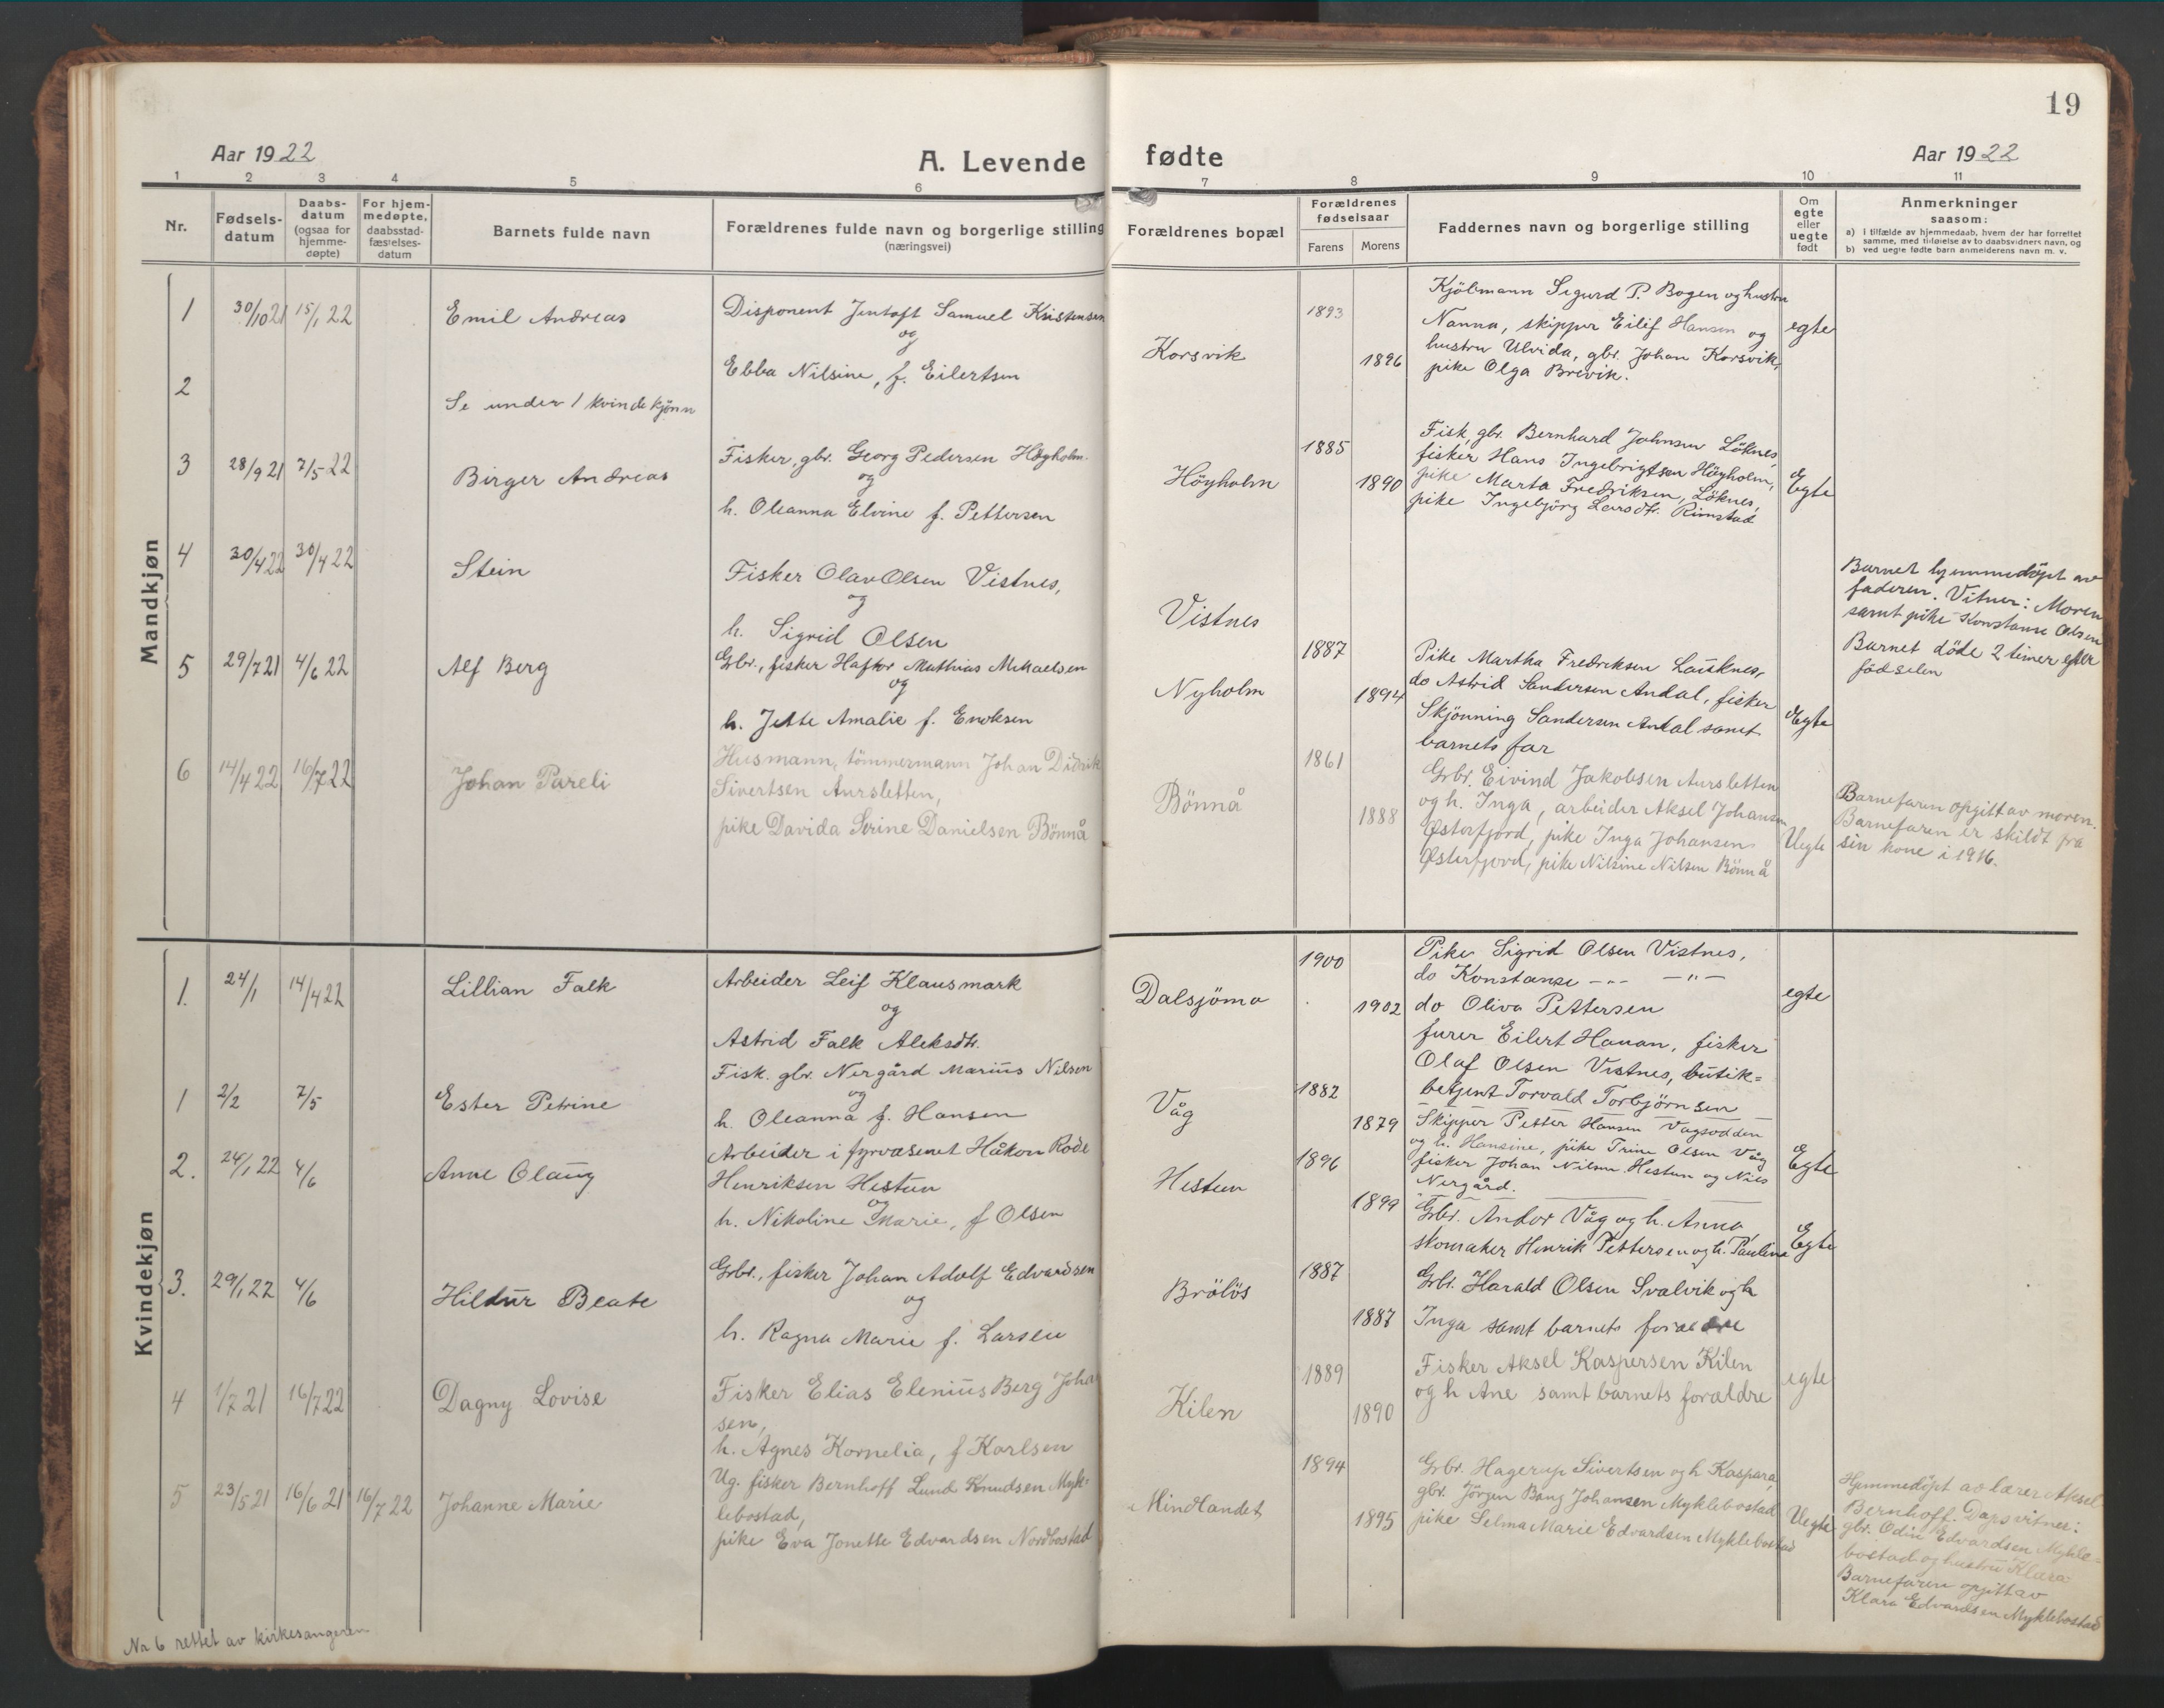 19
Aar 1922
A. Levende fødte
Aar 1922
1 2 3 4 5 6 7 8 9 10 11
Nr.
Fødsels-
datum
Daabs-
datum
(ogsaa for
hjemme-
døpte)
For hjem-
medøpte,
daabsstad-
fæstelses-
datum
Barnets fulde navn
Forældrenes fulde navn og borgerlige stilling
(næringsvei)
Forældrenes bopæl
Forældrenes
fødselsaar
Farens
Morens
Faddernes navn og borgerlige stilling
Om
egte
eller
uegte
født
Anmerkninger
saasom:
a) i tilfælde av hjemmedaab, hvem der har forrettet
samme, med tilføielse av to daabsvidners navn, og
b) ved uegte fødte barn anmelderens navn m. v.
Mandkjøn
1
30/10 21
15/1 22
Emil Andreas
Disponent Jentoft Samuel Kristensen
og
Ebba Nilsine, f. Eilertsen
Korsvik
1893
1896
Kjölmann Sigurd P. Bogen og hustru
Nanna, skipper Eilif Hansen og
hustru Ulvida, gbr. Johan Korsvik,
pike Olga Brevik.
egte
2
Se under 1 kvindekjönn
3
28/9 21
7/5 22
Birger Andreas
Fisker, gbr. Georg Pedersen Höyholm.
og
h. Oleanna Elvine f. Pettersen
Höyholm
1885
1890
Fisk. gbr. Bernhard Johnsen Löknes,
fisker Hans Ingebrigtsen Höyholm,
pike Marta Fredriksen, Löknes,
pike Ingebjörg Larsdtr. Rimstad
Egte
4
30/4 22
30/4 22
Stein
Fisker Olav Olsen Vistnes,
og
h. Sigrid Olsen
Vistnes
Barnet hjemmedöpt av
faderen. Vitner: Moren
samt pike Konstanse Olsen
Barnet döde 2 timer efter
födselen
5
29/7 21
4/6 22
Alf Berg
Gbr., fisker Hafkor Mathias Mikaelsen
og
h. Jette Amalie f. Enoksen
Nyholm
1887
1894
Pike Martha Fredriksen Lauknes,
do Astrid Sandersen Andal, fisker
Skjönning Sandersen Andal samt
barnets far
Egte
6
14/4 22
16/7 22
Johan Pareli
Husmann, tömmermann Johan Didrik
Sivertsen Aursletten,
pike Davida Serine Danielsen Bönnå
Bönnå
1861
1888
Gbr. Eivind Jakobsen Aursletten
og h. Inga, arbeider Aksel Johansen
Østerfjord, pike Inga Johansen
Østerfjord, pike Nilsine Nilsen Bönnå
Uegte
Barnefaren opgitt av moren.
Barnefaren er skildt fra
sin kone i 1916.
Kvindekjøn
1.
24/1
14/4 22
Lillian Falk
Arbeider Leif Klausmark
og
Astrid Falk Aleksdtr.
Dalsjömo
1900
1902
Pike Sigrid Olsen Vistnes,
do Konstanse -"- -"-
do Oliva Pettersen
furer Eilert Hauan, fisker
Olaf Olsen Vistnes, butik=
betjent Torvald Torbjörnsen
egte
1
2/2
7/5
Ester Petrine
Fisk. gbr. Nergård Marius Nilsen
og
h. Oleanna f. Hansen
Våg
1882
1879
Skipper Petter Hansen Vagsodden
og h. Hansine, pike Trine Olsen Våg
fisker Johan Nilsen Hestun og Nils
Nergård.
Egte
2.
24/1 22
4/6
Anne Olaug
Arbeider i fyrvæsenet Håkon Rode
Henriksen Hestun
og
h. Nikoline Marie, f Olsen
Hestun
1896
1899
Gbr. Andor Våg og h. Anna,
skomaker Henrik Pettersen og h. Pauline
Egte
3.
29/1 22
4/6
Hildur Beate
Gbr., fisker Johan Adolf Edvardsen
og
h. Ragna Marie f. Larsen
Brölös
1887
1887
Gbr. Harald Olsen Svalvik og h
Inga samt barnets foraeldre
4
1/7 21
16/7 22
Dagny Lovise
Fisker Elias Elenius Berg Joha
sen,
h. Agnes Kornelia, f Karlsen
Kilen
1889
1890
Fisker Aksel Kaspersen Kilen
og h Ane samt barnets forældre
egte
5
23/5 21
16/6 21
16/7 22
Johanne Marie
Ug. fisker Bernhoff Lund Knudsen Myk=
lebostad,
pike Eva Jonette Edvardsen Nordbostad
Mindlandet
1894
1895
Gbr. Hagerup Sivertsen og h Kaspara,
gbr. Jörgen Bang Johansen Myklebostad
pike Selma Marie Edvardsen Myklebostad
Uegte
Hjemmedöpt av lærer Aksel
Bernhoff. Dapsvitner:
gbr. Odin Edvardsen Mykle=
bostad og hustru Klara
Barnefaren opgitt av
Klara Edvardsen Myklebostad
No 6 rettet av kirkesangeren